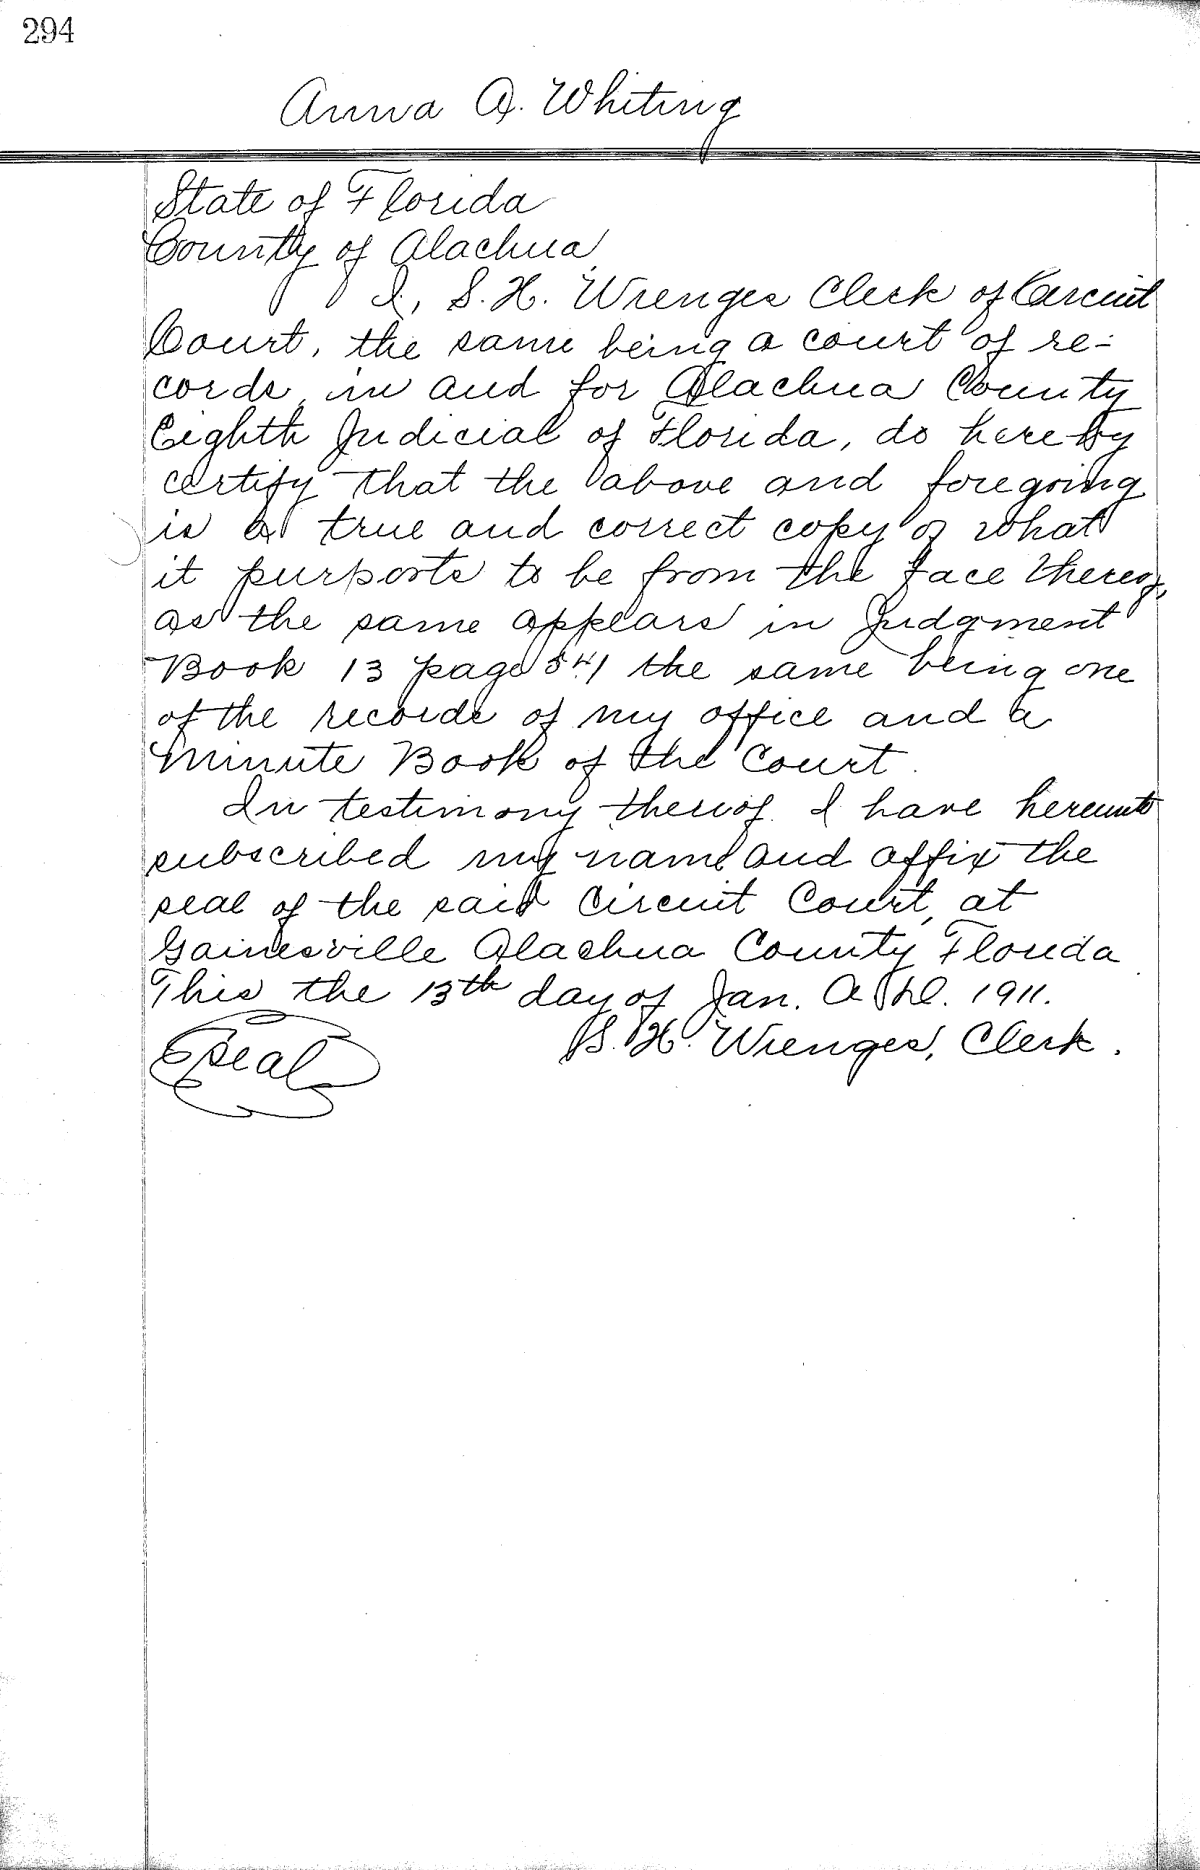 294
Anna A. Whiting
State of Florida
County of Alachua
I, S. H. Wienges Clerk of Circuit
Court, the same being a court of re-
cords, in and for Alachua County
Eighth Judicial of Florida, do hereby
certify that the above and foregoing
is a true and correct copy of what
it purports to be from the face thereof,
as the same appears in Judgment
Book 13 page 541 the same being one
of the records of my office and a
Minute Book of the Court.
In testimony thereof I have hereunto
subscribed my name and affix the
seal of the said Circuit Court, at
Gainesville Alachua County Florida
This the 13th day of Jan. A.D. 1911.
Seal S. H. Wienges, Clerk.